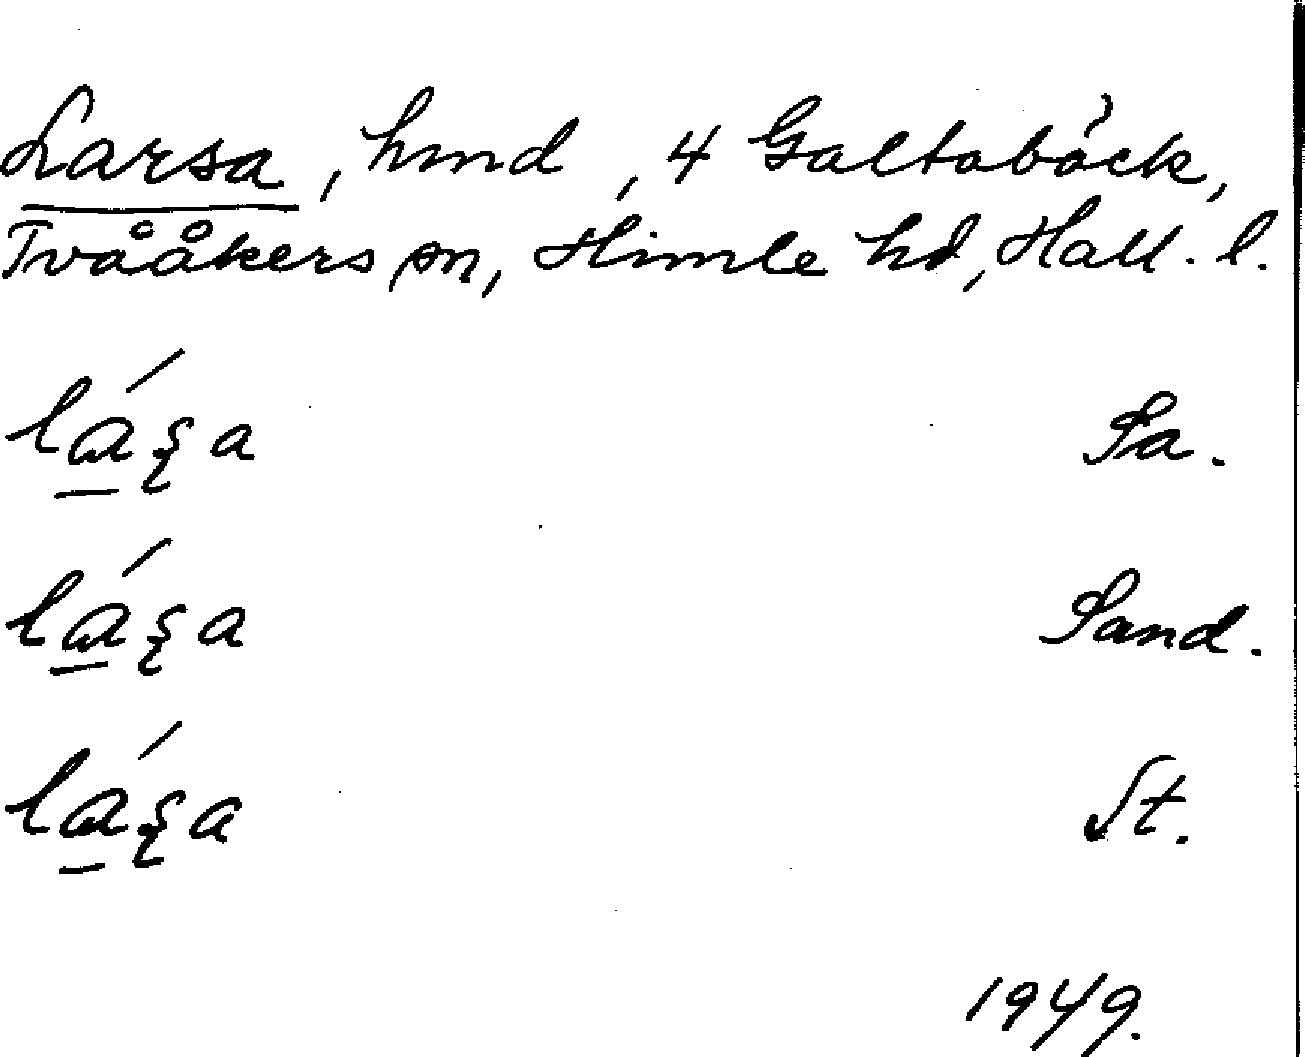 Larsa, hmd, 4 Galtabäck,
Tvååkers sn, Himle hd, Hall. l.
Sa.
Sand.
St.
1949.